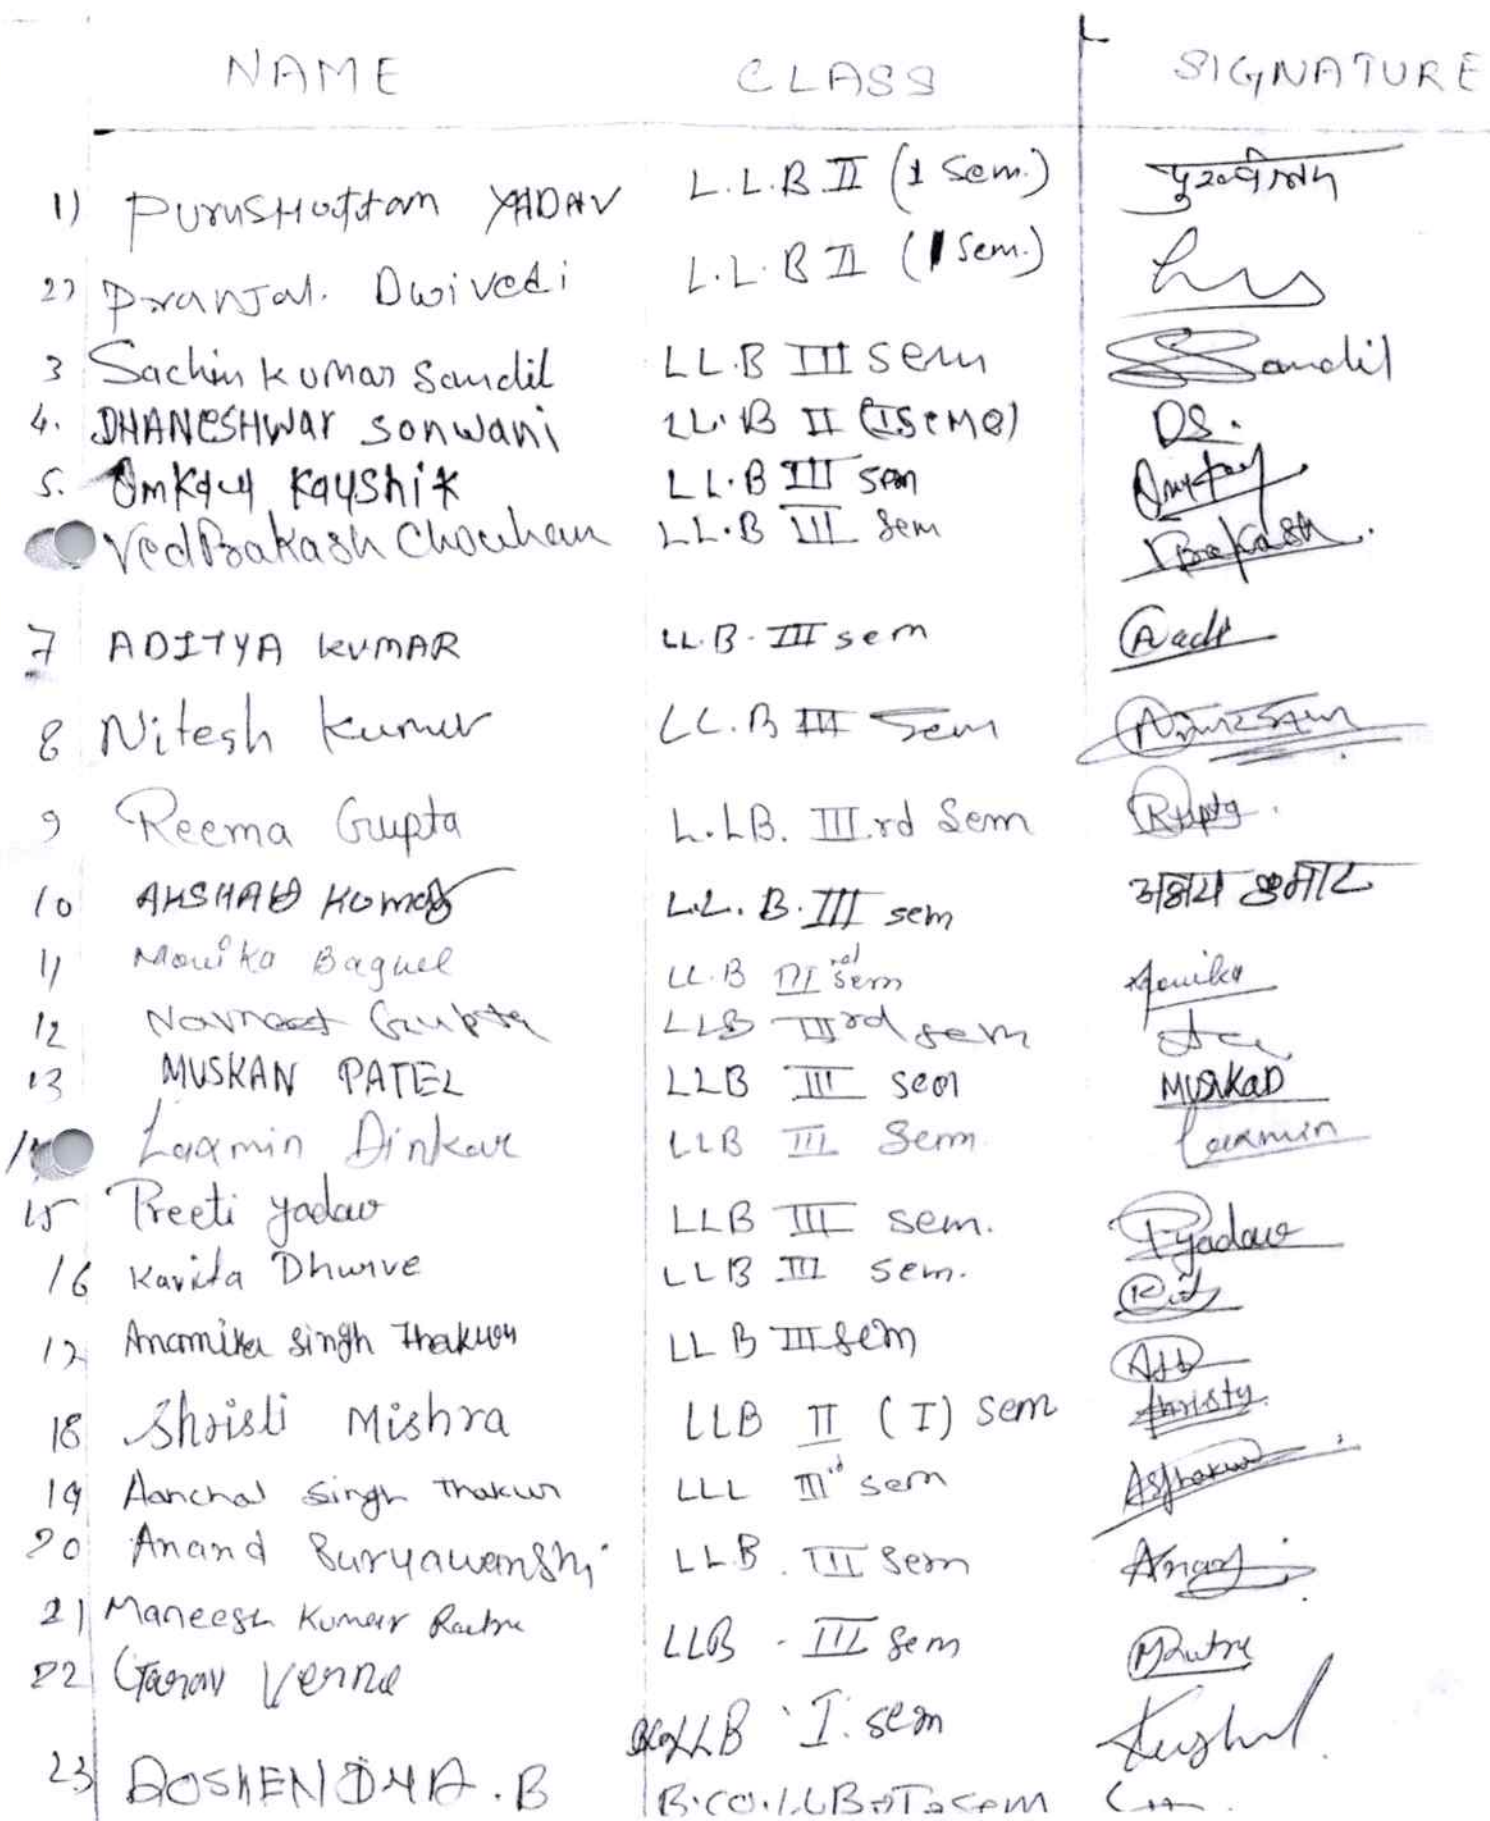 NAME CLASS SIGNATURE
1) Purushottam YADAV L.L.B II (1 Sem.)
2) Pranjal. Dwivedi L.L.B II (1 Sem.)
3 Sachin kumar Sandil LL.B III sem Sandil
4. DHANESHWAR Sonwani LL.B II (I SEME) DS.
5. Omkar Kaushik LL.B III sem
VedPrakash Chouhan LL.B III Sem VPrakash.
7 ADITYA KUMAR LL.B. III sem Aadi
8 Nitesh Kumar LL.B III Sem
9 Reema Gupta L.LB. III rd Sem RGupta.
10 AKSHAY Kumar L.L.B. III sem अक्षय कुमार
11 Monika Baghel LL.B III rd sem Monika
12 Navneet Gupta LLB III rd sem
13 MUSKAN PATEL LLB III sem MUSKAN
14 Laxmin Dinkar LLB III Sem. Laxmin
15 Preeti yadav LLB III sem. Pyadav
16 Kavita Dhurve LLB III sem.
17 Anamika singh Thakur LL B III sem
18 Shristi Mishra LLB II (I) sem Shristy
19 Aanchal Singh Thakur LLL III rd sem ASThakur
20 Anand Suryawanshi LLB. III Sem Anand
21 Maneesh Kumar Ratre LLB - III Sem MRatre
22 Garav Verma LLB I. sem
23 B.CO.LLB I sem